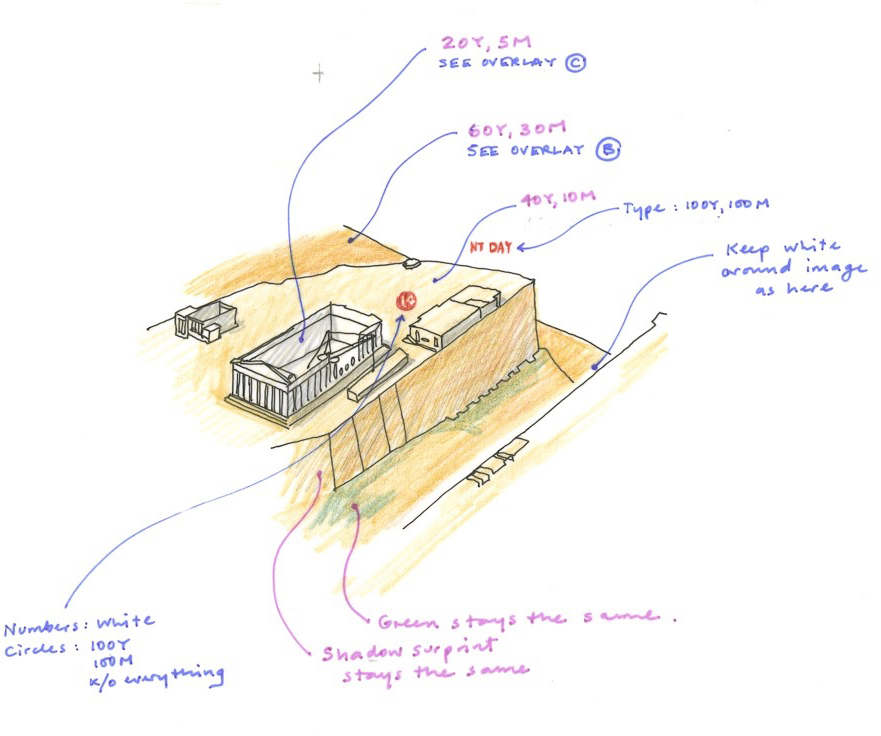 20Y, 5M
SEE OVERLAY C
60Y, 30M
SEE OVERLAY B
40Y, 10M
Type : 100Y, 100M
NT DAY
Keep white
around image
as here
Numbers : White
Circles : 100Y
100M
K/O everything
Green stays the same .
Shadow surprint
stays the same